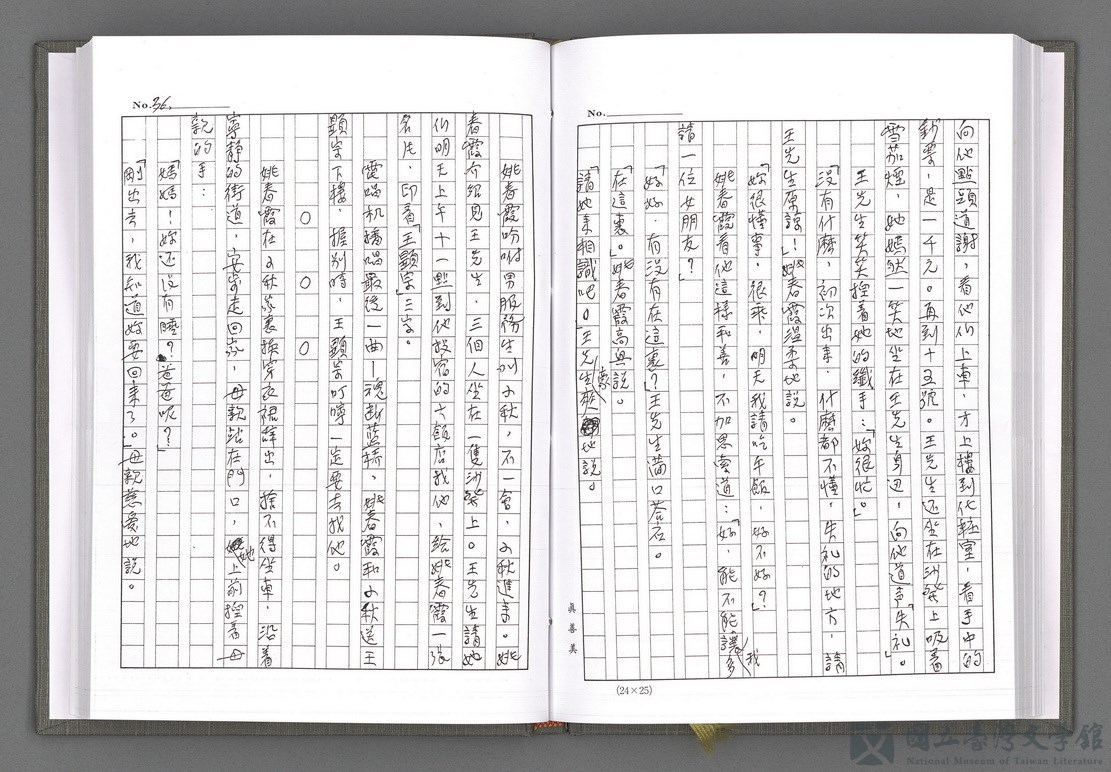 No.
向他點頭道謝，看他們上車，才上樓到化粧室，看手中的
鈔票，是一千元。再到十五號。王先生还坐在沙發上吸着
雪茄煙，她嫣然一笑地坐在王先生身边，向他道声「失礼」。
王先生笑笑握着她的纖手：「妳很忙。」
「没有什麼，初次出来，什麼都不懂，失礼的地方，請
王先生原諒！」姚春霞温柔地說。
「妳很懂事，很乖，明天我請吃午飯，好不好？」
姚春霞看他這樣和善，不加思索道：「好，能不能讓我多
請一位女朋友？」
「好好，有没有在這裏？」王先生滿口答应。
「在這裏。」姚春霞高興說。
「請她来相識吧。」王先生爽地說。
(24×25)
眞善美
No.36.
姚春霞吩咐男服務生叫小秋，不一會，小秋進来。姚
春霞介紹見王先生，三個人坐在一隻沙發上。王先生請她
们明天上午十一點到他投宿的大飯店找他，給姚春霞一張
名片，印着「王顯宗」三字。
電唱机播唱最後一曲—魂断藍橋，姚春霞和小秋送王
顯宗下樓，握别時，王顯宗叮嚀一定要去找他。
○ ○ ○
姚春霞在小秋家裏換穿衣裙辞出，捨不得坐車，沿着
寧静的街道，安步走回家，母親站在門口，她上前握着母
親的手：
「媽媽！妳还没有睡？爸爸呢？」
「剛出去，我知道妳要回来了。」母親慈愛地說。
國立臺灣文學館
National Museum of Taiwan Literature